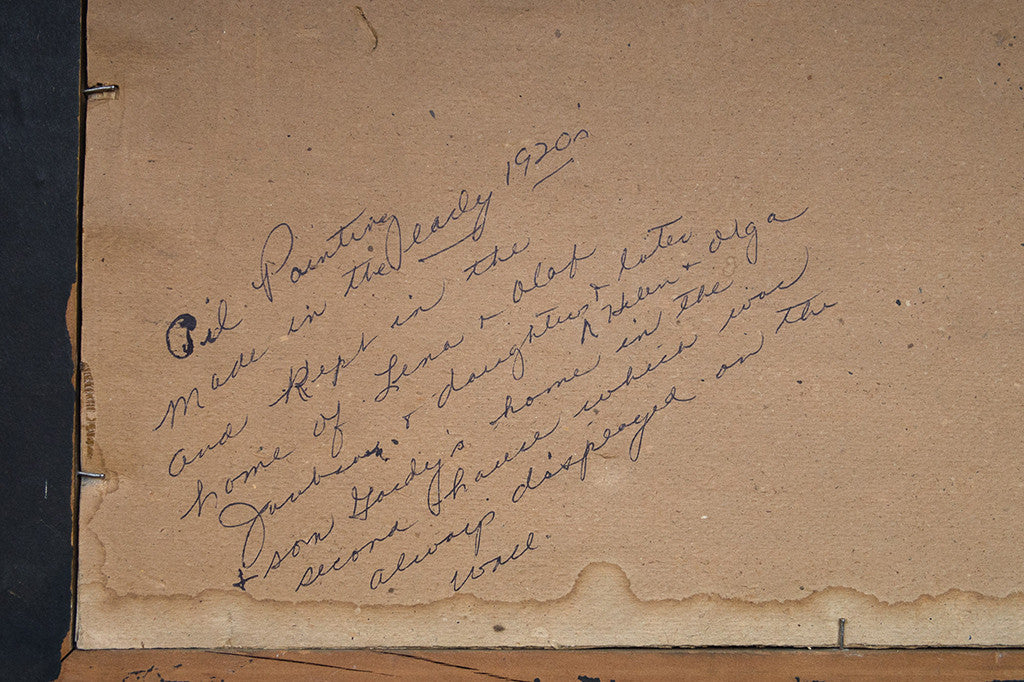 Oil Painting
Made in the early 1920s
and Kept in the
home of Lena + Olaf
+ daughters + later
Helen + Olga
+ son Gordy's home in the
second house which was
always displayed on the
wall.